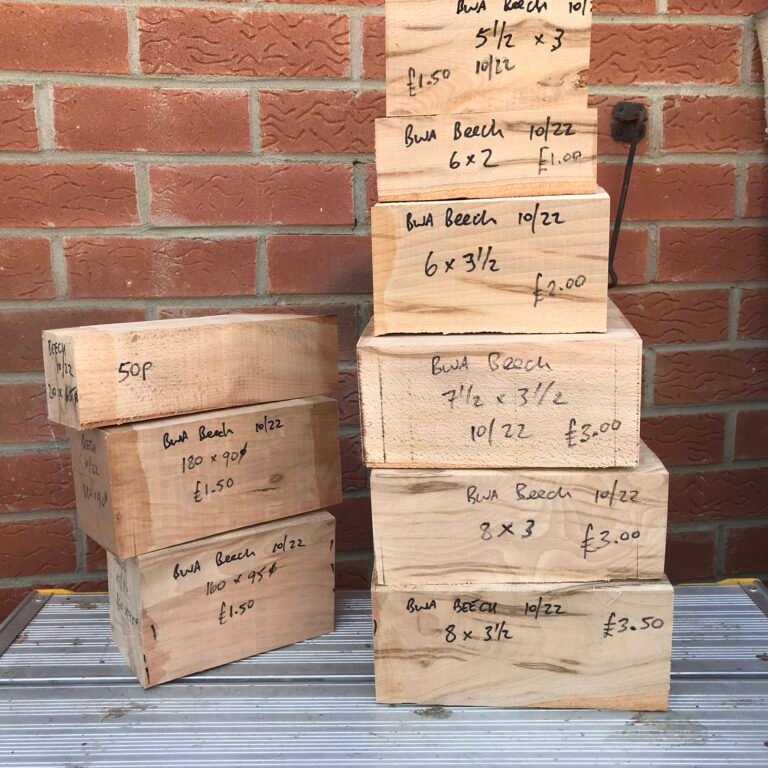 BWA Beech 10/
5½ x 3
£1.50 10/22
BWA Beech 10/22
6 x 2 £1.00
BWA Beech 10/22
6 x 3½
£2.00
BWA Beech
7½ x 3½
10/22 £3.00
BWA Beech 10/22
8 x 3 £3.00
BWA BEECH 10/22
8 x 3½ £3.50
BEECH
10/22
50P
BWA Beech 10/22
180 x 90
£1.50
BEECH
10/22
BWA Beech 10/22
160 x 95
£1.50